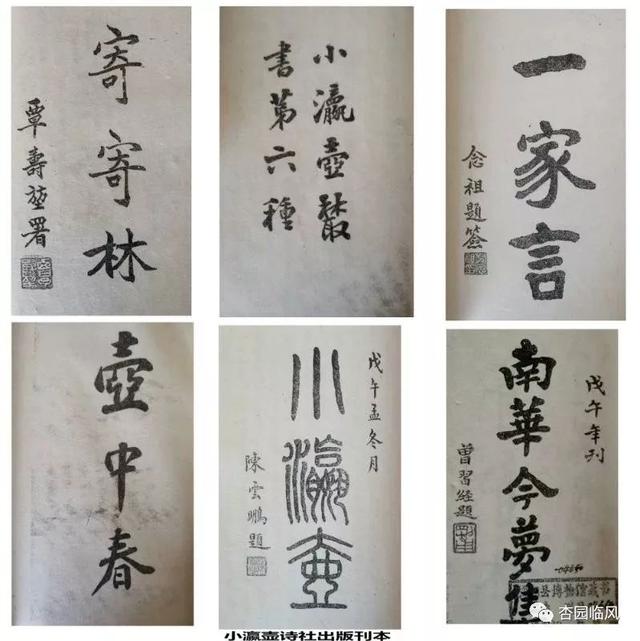 寄寄林
覃壽堃署
小瀛壺叢
書第六種
一家言
念祖題簽
壺中春
戊午孟冬月
小瀛壺
陳雲鵬題
戊午年刊
南華今夢
曾習經題
县博物馆藏书
小瀛壶诗社出版刊本
杏园临风